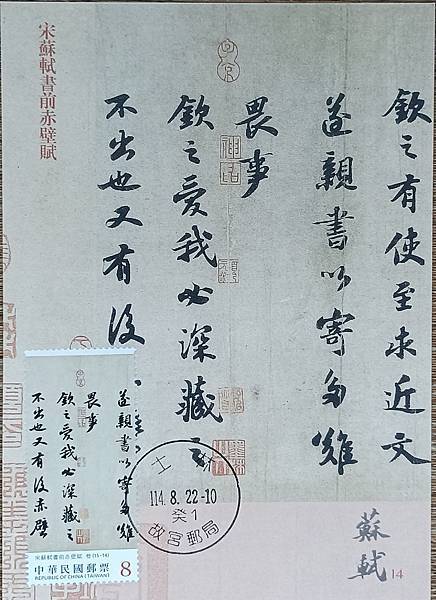 宋蘇軾書前赤壁賦
欽之有使至求近文
遂親書以寄多難
畏事
欽之愛我必深藏之
不出也又有後
遂親書以寄多難
畏事
欽之愛我必深藏之
不出也又有後赤壁
宋蘇軾書前赤壁賦 卷(15-14)
中華民國郵票
REPUBLIC OF CHINA (TAIWAN)
8
士林
114.8.22-10
癸1
故宮郵局
蘇軾
14